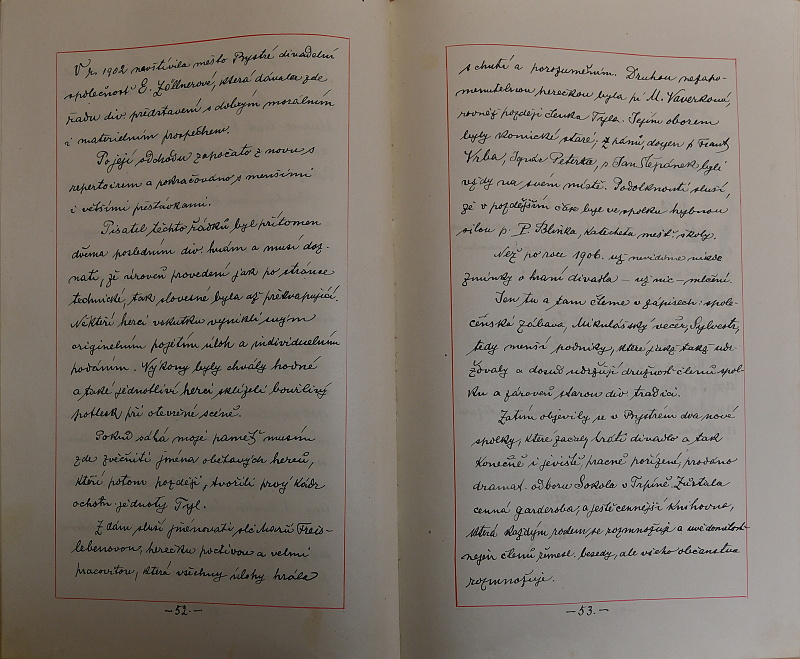 V r. 1902 navštívila město Bystré divadelní
společnost E. Zöllnerové, která dávala zde
řadu div. představení s dobrým morálním
i materielním prospěchem.
Po její odchodu započato z novu s
repertoirem a pokračováno s menšími
i většími přestávkami.
Pisatel těchto řádků byl přítomen
dvěma posledním div. hrám a musí doz-
nati, že úroveň provedení jak po stránce
technické, tak slovesné byla až překvapující.
Někteří herci vskutku vynikli svým
originelním pojetím úloh a individuelním
podáním. Výkony byly chvály hodné
a také jednotliví herci sklízeli bouřlivý
potlesk při otevřené scéně.
Pokud sáhá moje paměť musím
zde zvěčniti jména obětavých herců,
kteří potom později, tvořili prvý kádr
ochotn. jednoty Tyl.
Z dám sluší jmenovati slč. Marii Freis-
lebenovou, herečku poctivou a velmi
pracovitou, která všechny úlohy hrála
- 52. -
s chutí a porozuměním. Druhou nezapo-
menutelnou herečkou byla pí M. Vaverková,
rovněž později Lenka Tyla. Jejím oborem
byly komické staré; z pánů, doyen p. Frant.
Vrba, Ignác Peterka, p. Jan Štěpánek byli
vždy na svém místě. Podotknouti sluší,
že v pozdějším čase byl ve spolku hybnou
silou p. P. Blinka, katecheta měšť. školy.
Než po roce 1906. už nevidíme nikde
zmínky o hraní divadla — už nic — mlčení.
Jen tu a tam čteme v zápisech: spole-
čenská zábava, Mikulášský večer, Sylvestr,
tedy menší podniky, které jakž takž udr-
žovaly a dosud udržují družnost členů spol-
ku a zároveň starou div. tradici.
Zatím objevily se v Bystrém dva nové
spolky, které začaly hráti divadlo a tak
konečně i jeviště, pracně pořízené, prodáno
dramat. odboru Sokola v Trpíně. Zůstala
cenná garderoba, a ještě cennější knihovna,
která každým rokem se rozmnožuje a uvědomělost
nejen členů řemesl. besedy, ale všeho občanstva
rozmnožuje.
- 53. -